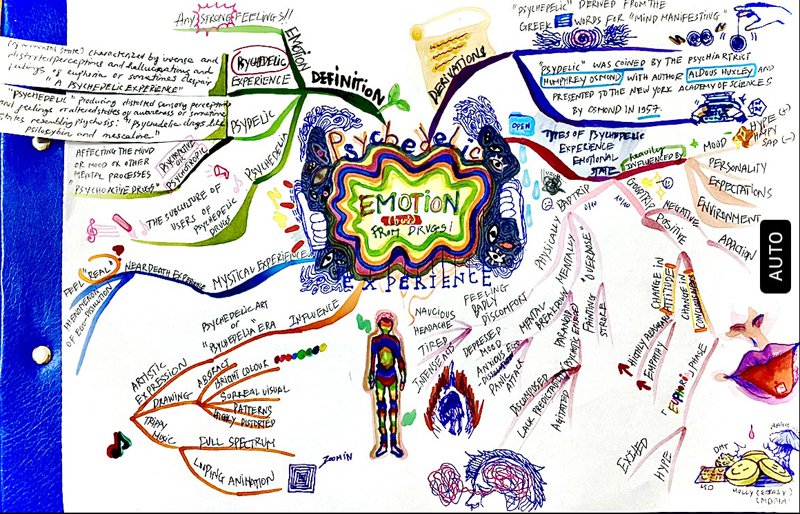 Any STRONG FEELINGS!!
EMOTION
DEFINITION
PSYCHEDELIC
EXPERIENCE
characterized by intense and
distorted perceptions and hallucinations and
feelings of euphoria or sometimes despair
"A PSYCHEDELIC EXPERIENCE"
PSYDELIC
"PSYCHEDELIC" producing distorted sensory perceptions
and feelings or altered states of awareness or sometimes
states resembling psychosis: "Psychedelic drugs like
psilocybin and mescaline"
PSYCHOACTIVE
OR
PSYCHOTROPIC
AFFECTING THE MIND
OR MOOD OR OTHER
MENTAL PROCESSES
"PSYCHOACTIVE DRUGS"
PSYCHEDELIA
THE SUBCULTURE OF
USERS OF PSYCHEDELIC
DRUGS
MYSTICAL EXPERIENCE
NEAR DEATH EXPERIENCE
FEEL "REAL"
PHENOMENON
OF EGO-DISSOLUTION
DERIVATIONS
"PSYPEDELIC" DERIVED FROM THE
GREEK WORDS FOR "MIND MANIFESTING"
"PSYDELIC" WAS COINED BY THE PSYCHIATRIST
HUMPHREY OSMOND WITH AUTHOR ALDOUS HUXLEY AND
PRESENTED TO THE NEW YORK ACADEMY OF SCIENCES
BY OSMOND IN 1957.
Psychedelic
EMOTION
FROM DRUGS!
EXPERIENCE
OPEN
TYPES OF PSYCHEDELIC
EXPERIENCE
EMOTIONAL
STATE
heavily
INFLUENCED BY
MOOD
HYPE (+)
SAD (-)
PERSONALITY
EXPECTATIONS
ENVIRONMENT
ADDICTION
BAD TRIP
PHYSICALLY
FEELING
BADLY
DISCOMFORT
NAUCIOUS
HEADACHE
TIRED
MENTALLY
MENTAL
BREAKDOWN
DEPRESSED
MOOD
ANXIOUS
PANIC
ATTACK
PARANOID
LACK PREDICTABILITY
AGITATED
"OVERDOSE"
FAINTING
STROKE
GOOD TRIP
NEGATIVE
POSITIVE
CHANGE IN
ATTITUDE
HIGHLY
EMPATHY
CHANGE IN
PHASE
EXCITED
HYPE
INFLUENCE
PSYCHEDELIC ART
OR
"PSYCHEDELIA ERA"
ARTISTIC
EXPRESSION
DRAWING
ABSTRACT
BRIGHT COLOUR
SURREAL VISUAL
PATTERNS
HIGHLY DISTORTED
TRIPPY
MUSIC
FULL SPECTRUM
LOOPING ANIMATION
ZOOM IN
DMT
LSD
MOLLY (ECTASY)
(MDMA)
AUTO